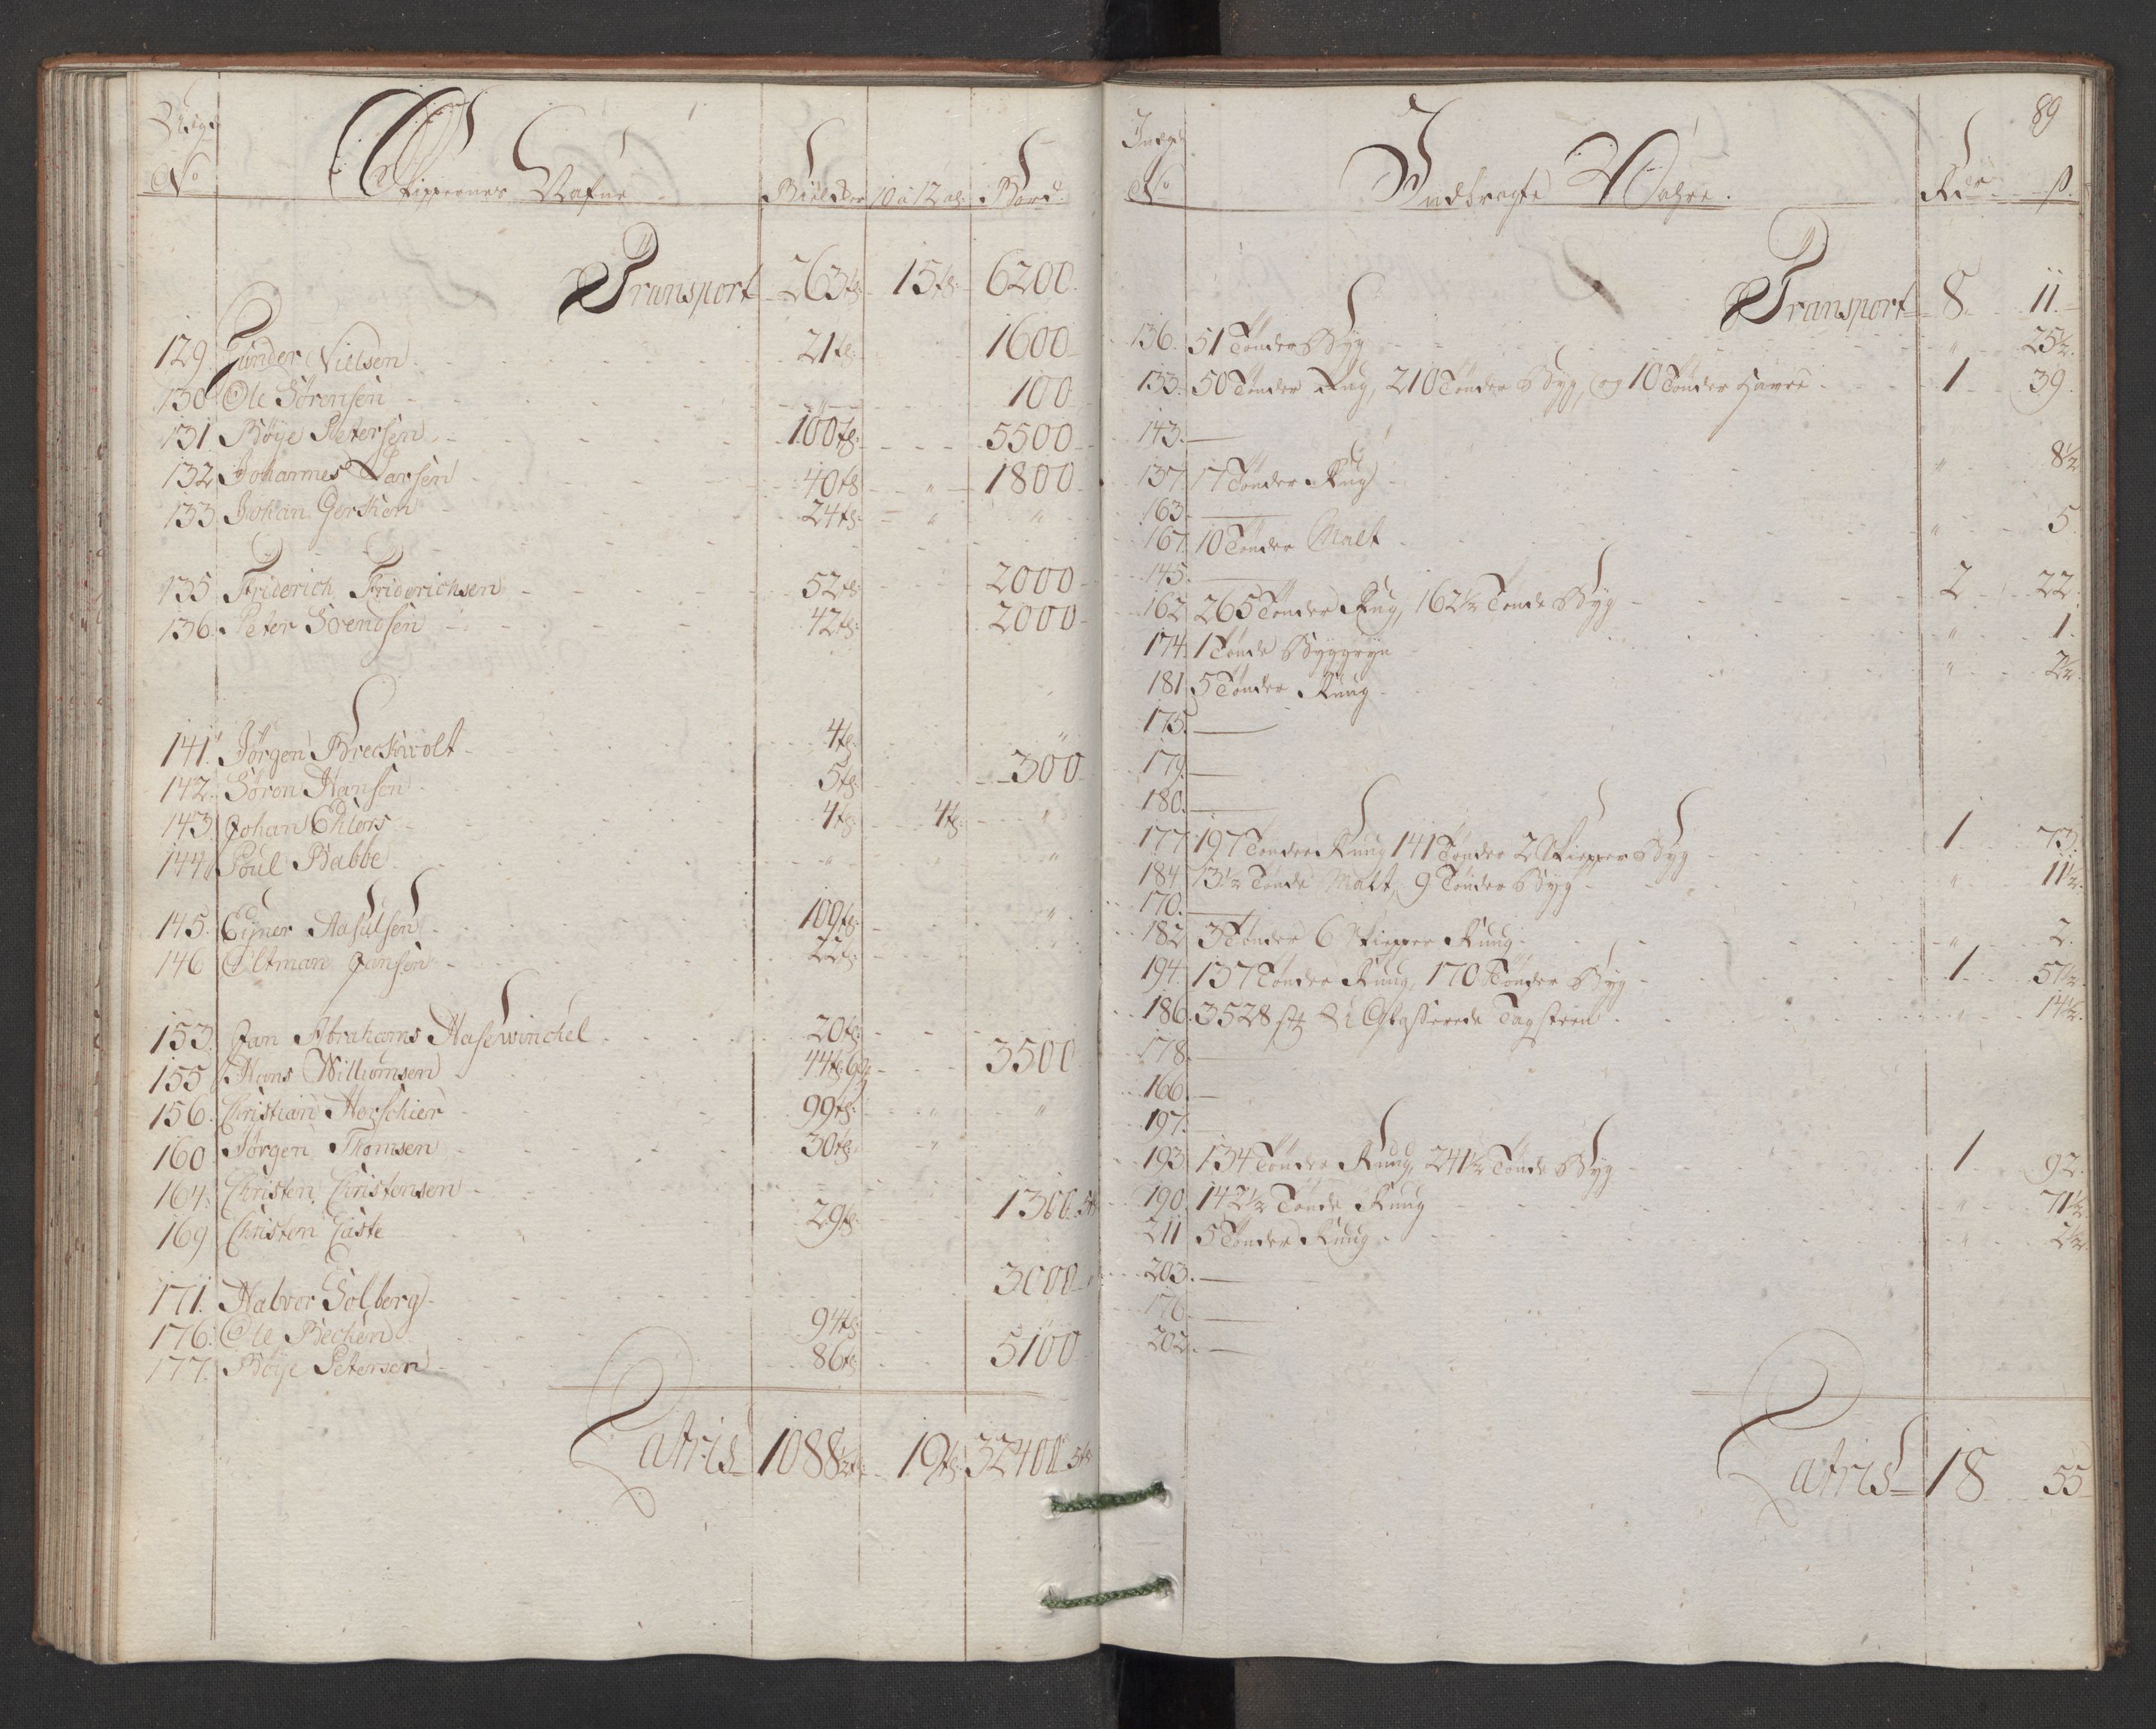 Udgs
No Skippernes Nafne Bielcker 10 a 12 al: Bord
Transport 263 tl: 15 tl: 6200
129. Gunder Nielsen 21 tl: 1600
130 Ole Sörensen " 100
131. Böije Petersen 100 tl: 5500
132 Johannes Larsen 40 tl: " 1800
133. Johan Gerken 24 tl: " "
135 Friderich Friderichsen 52 tl: 2000
136. Peter Svendsen 42 tl: 2000
141. Jörgen Breckwolt 4 tl: "
142. Sören Hansen 5 tl: 300
143. Johan Ehlers 4 tl: 4 tl: "
144. Poul Rabbe " " "
145. Ejner Aasulsen 109 tl: "
146 Oltman Jansen 22 tl: "
153. Jan Abrahams Hasewinchel 20 tl:
155 Hans Willumsen 44 tl: 3500
156. Christian Herschier 99 tl: " "
160 Jörgen Thomsen 30 tl: "
164. Christen Christensen 1300
169 Christen Gaste 29 tl:
171. Halvor Solberg 3000
176. Ole Becken 94 tl:
177. Böije Petersen 86 tl: 5100
Latris 1088½ tl: 19 tl: 32400 5 tl:
89
Indgs
No Indbragte Vahre. Rdr ß.
Transport 8 11.
136. 51 Tönder Byg " 25½.
133. 50 Tönder Rug, 210 Tönder Byg, og 10 Tönder Havre 1 39.
143. —
137 17 Tönder Rug " 8½
163. —
167. 10 Tönder Malt " 5
145. —
162 265 Tönder Rug, 162½ Tönde Byg 2 22.
174. 1 Tönde Byggryn " 1.
181. 5 Tönder Ruug " 2½.
175. —
179. —
180. —
177. 197 Tönder Ruug 141 Tönder 2 Skiepper Byg 1 73.
184 13½ Tönde Malt, 9 Tönder Byg " 11½.
170. —
182 3 Tönder 6 Skiepper Ruug " 2.
194. 137 Tönder Ruug, 170 Tönder Byg 1 57½.
186. 3528 st: Glasserede Tagsteen " 14½.
178. —
166. —
197. —
193. 134 Tönder Ruug, 241½ Tönde Byg 1 92.
190. 142½ Tönde Ruug " 71½.
211 5 Tönder Ruug " 2½.
203. —
176. —
202. —
Latris 18 55